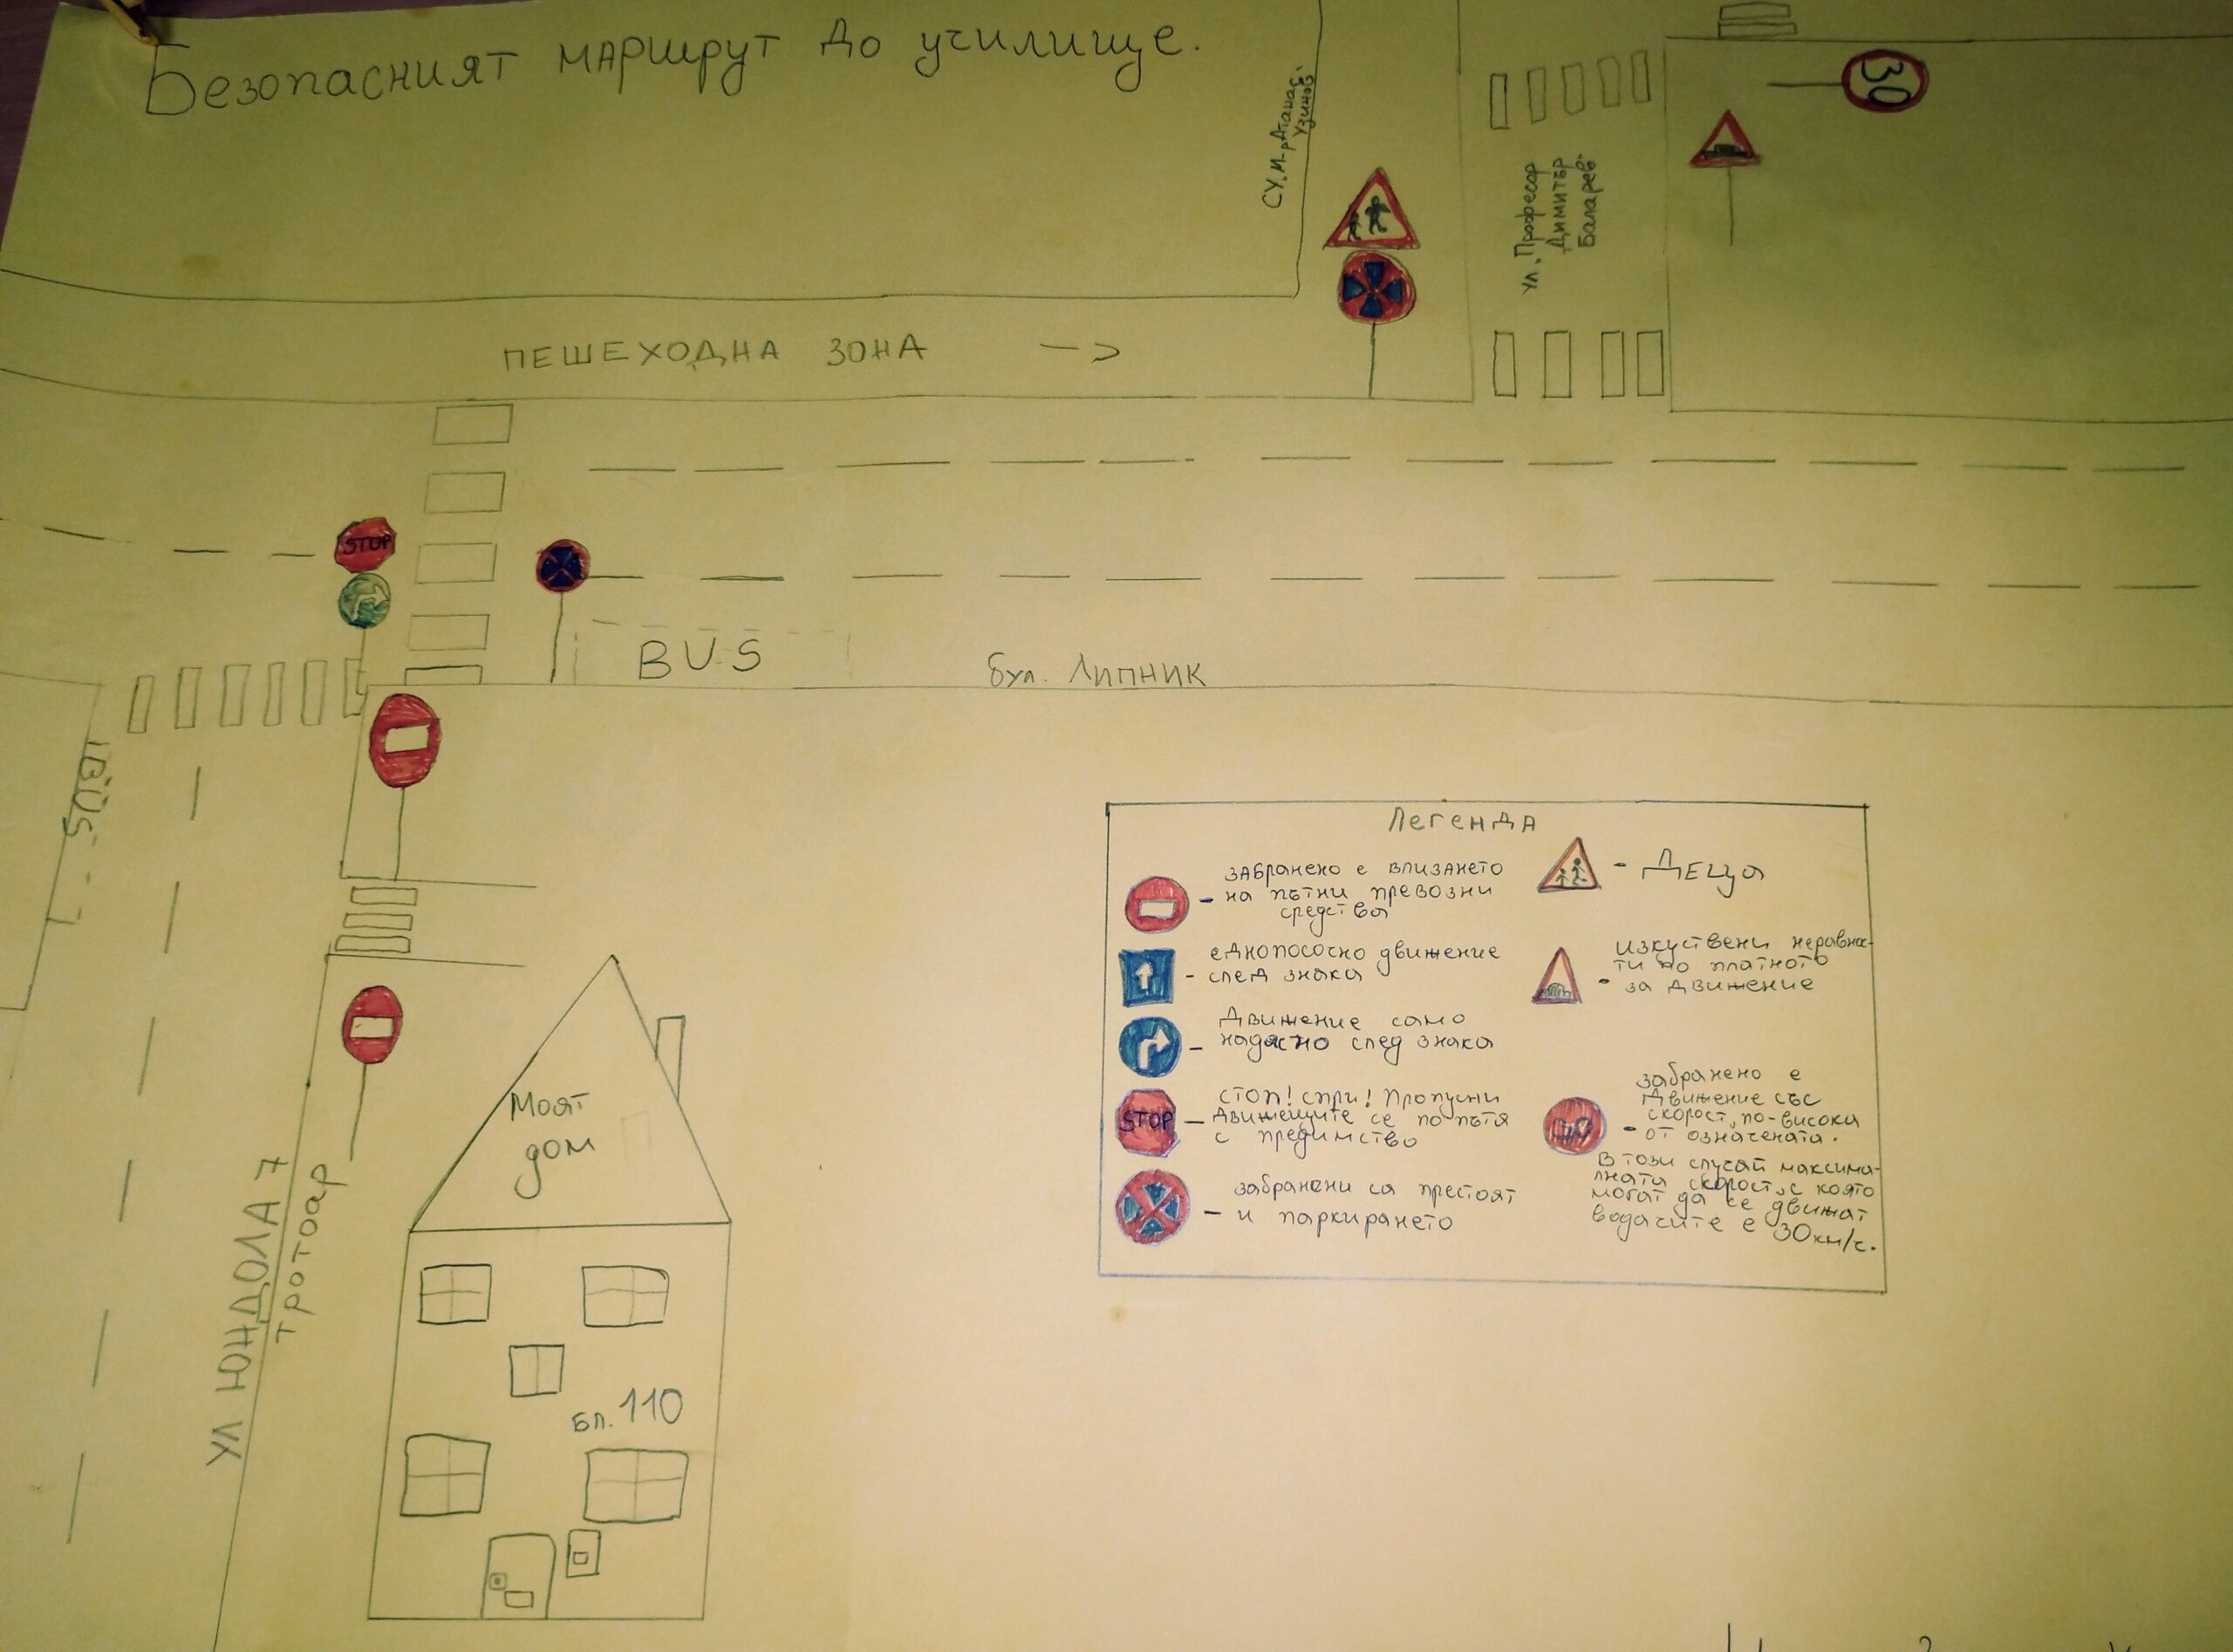 Безопасният маршрут до училище.
СУ„М-р Атанас
Узунов"
30
ул. Професор
Димитър
Баларев"
ПЕШЕХОДНА ЗОНА -->
STOP
BUS
бул. Липник
BUS
УЛ ЮНДОЛА 7
тротоар
Моят
дом
Бл. 110
Легенда
забранено е влизането
- на пътни превозни
средства
еднопосочно движение
- след знака
Движение само
- надясно след знака
STOP
СТОП! Спри! Пропусни
- движещите се по пътя
с предимство
забранени са престоят
- и паркирането
- Деца
изкуствени неравнос-
ти по платното
- за движение
забранено е
движение със
скорост, по-висока
- от означената.
В този случай максима-
лната скорост, с която
могат да се движат
водачите е 30км/ч.